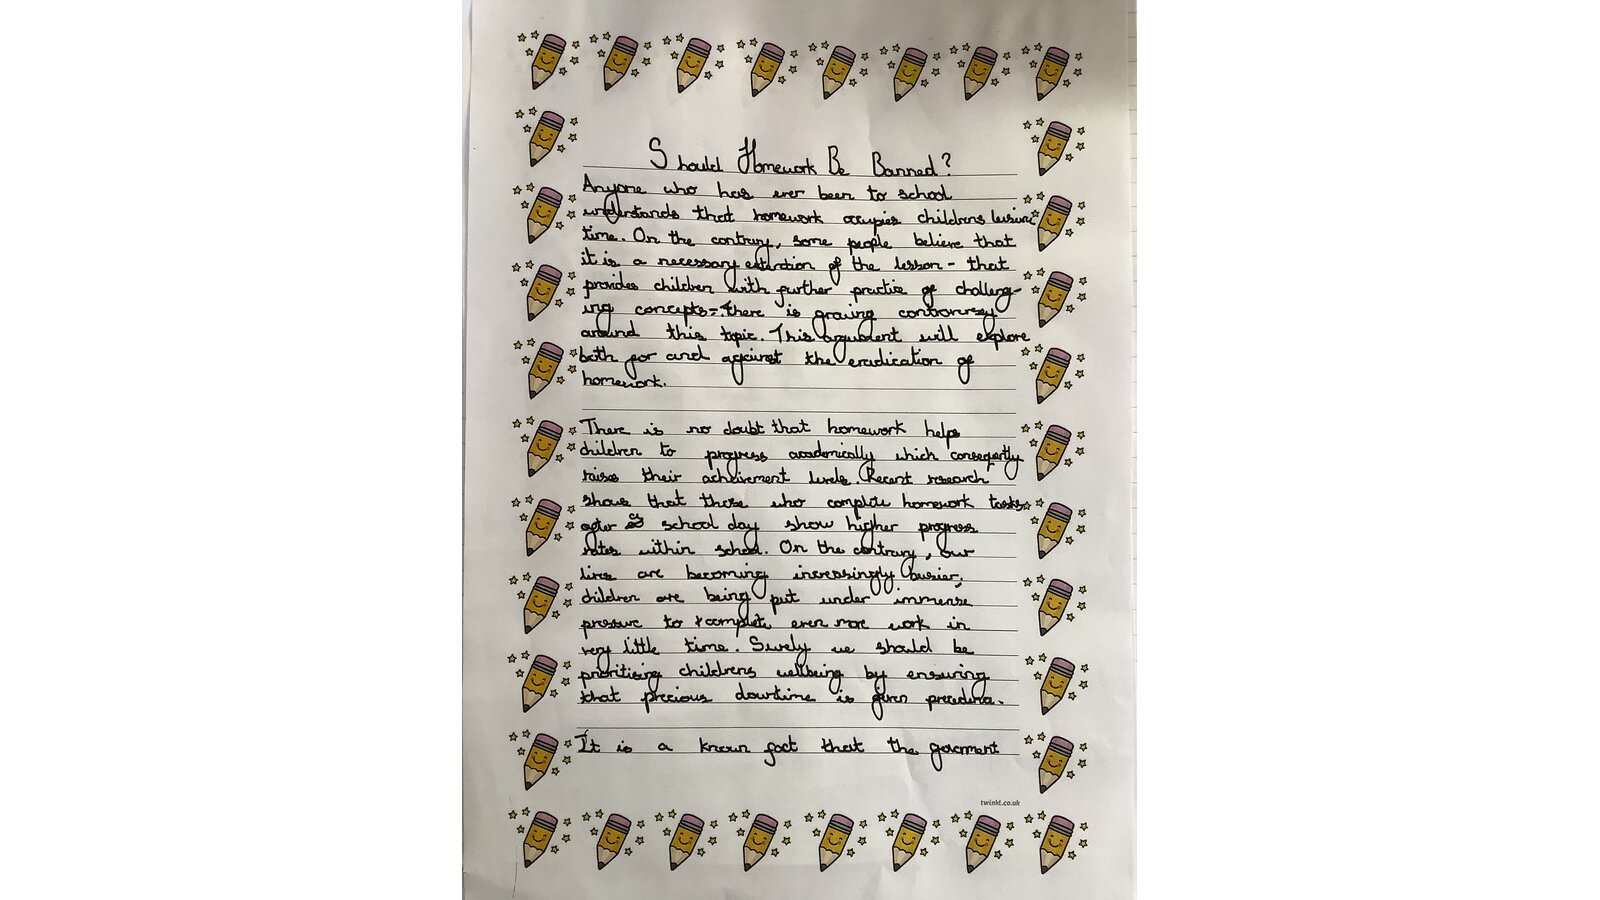 Should Homework Be Banned?
Anyone who has ever been to school
understands that homework occupies childrens leisure
time. On the contrary, some people believe that
it is a necessary extention of the lesson - that
provides children with further practice of challeng-
ing concepts - there is growing controversy
around this topic. This argument will explore
both for and against the eradication of
homework.
There is no doubt that homework helps
children to progress academically which conseqently
raises their acheivement levels. Recent research
shows that those who complete homework tasks
after school day show higher progress
rates within school. On the contrary, our
lives are becoming increasingly busier,
children are being put under immense
pressure to complete even more work in
very little time. Surely we should be
prioritising childrens wellbeing by ensuring
that precious downtime is given precedence.
It is a known fact that the goverment
twinkl.co.uk